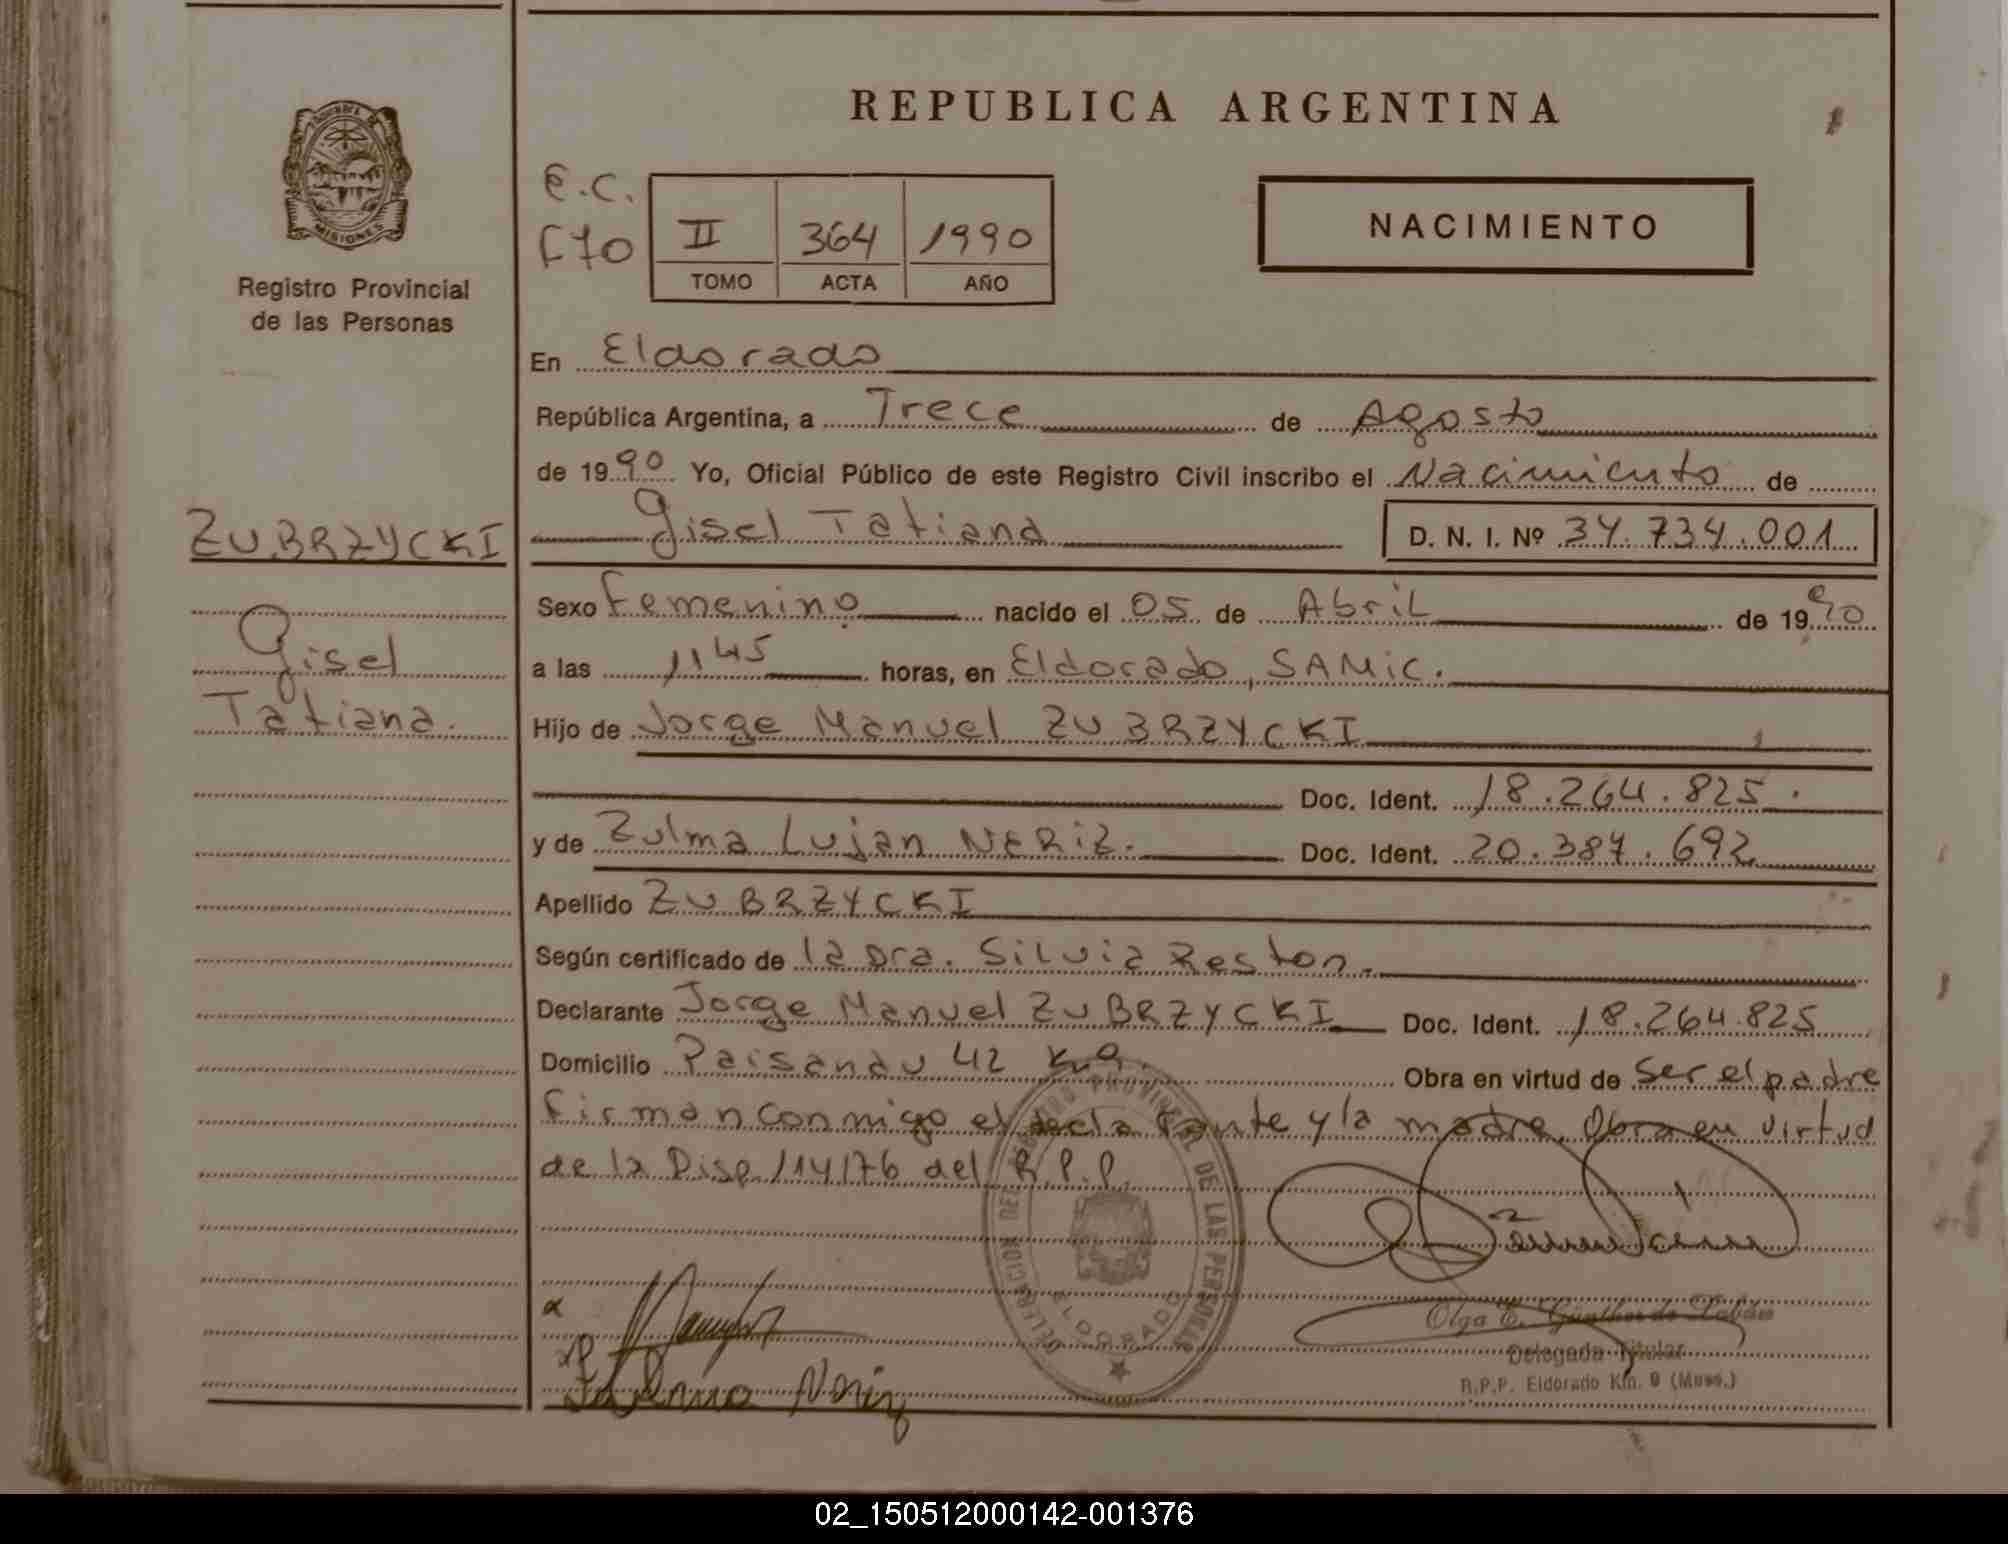 REPUBLICA ARGENTINA
MISIONES
Registro Provincial
de las Personas
E.C.
F70
II 364 1990
TOMO ACTA AÑO
NACIMIENTO
En Eldorado
República Argentina, a Trece de Agosto
de 1990 Yo, Oficial Público de este Registro Civil inscribo el Nacimiento de
Gisel Tatiana D. N. I. Nº 34.734.001
ZUBRZYCKI
Gisel
Tatiana.
Sexo Femenino nacido el 05 de Abril de 1990
a las 1145 horas, en Eldorado, SAMIC.
Hijo de Jorge Manuel ZUBRZYCKI
Doc. Ident. 18.264.825.
y de Zulma Lujan NERIZ. Doc. Ident. 20.387.692
Apellido ZUBRZYCKI
Según certificado de la Dra. Silvia Reston.
Declarante Jorge Manuel ZUBRZYCKI Doc. Ident. 18.264.825
Domicilio Paisandu 42 K.9. Obra en virtud de ser el padre
Firman conmigo el declarante y la madre. Obra en virtud
de la Disp. 114/76 del R.P.P.
DELEGACION DEL REGISTRO PROVINCIAL DE LAS PERSONAS
ELDORADO
Olga E. Günther de
Delegada Titular
R.P.P. Eldorado Km. 9 (Mnes.)
Neriz
02_150512000142-001376